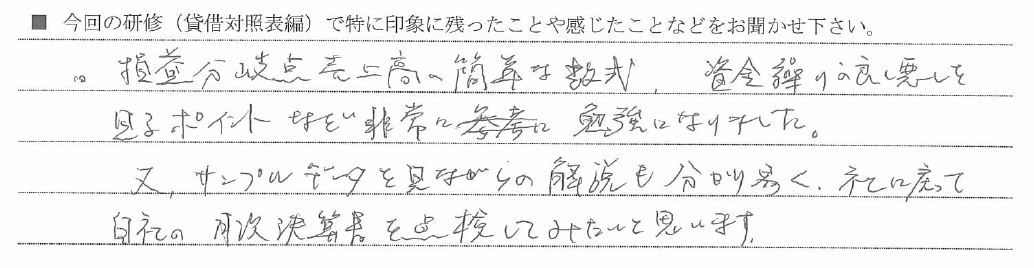 ■ 今回の研修（貸借対照表編）で特に印象に残ったことや感じたことなどをお聞かせ下さい。
損益分岐点売上高の簡単な数式、資金繰りの良し悪しを
見るポイントなど非常に参考に勉強になりました。
又、サンプルデータを見ながらの解説も分かり易く、社に戻って
自社の月次決算書を点検してみたいと思います。